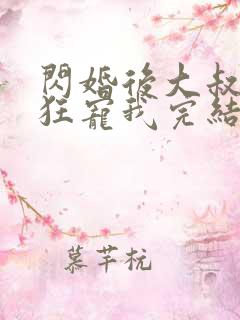 閃婚後大叔
狂寵我完結
慕芊杭